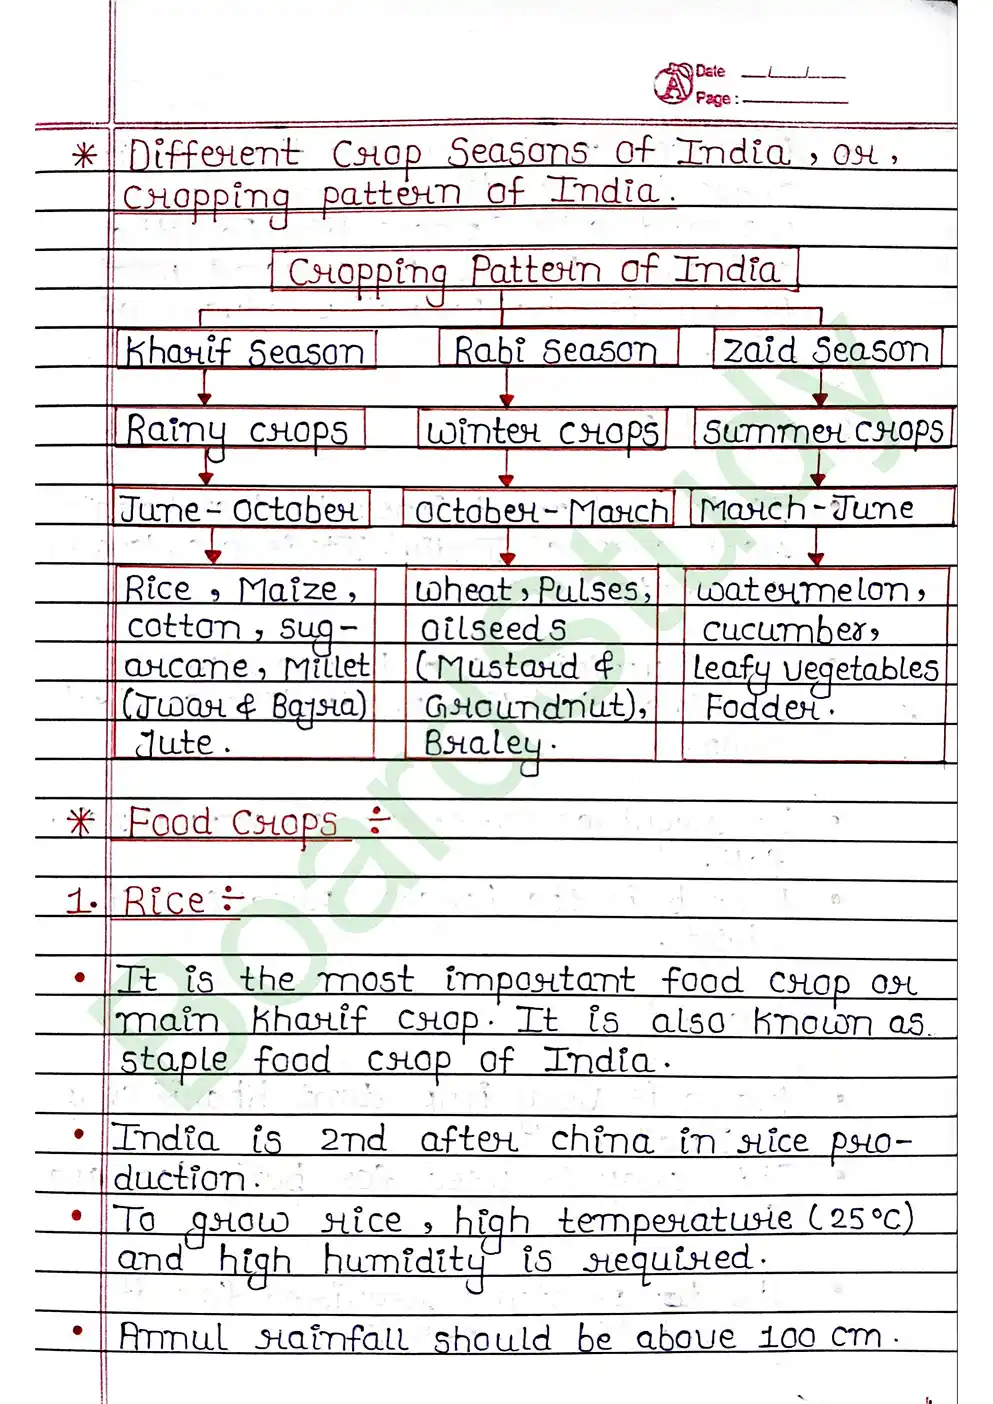 Date __/__/__
Page: ______
* Different Crop Seasons of India, or,
cropping pattern of India.
Cropping Pattern of India
Kharif Season Rabi Season Zaid Season
Rainy crops winter crops summer crops
June - October October - March March - June
Rice, Maize, wheat, Pulses, watermelon,
cotton, sug- oilseeds cucumber,
arcane, Millet (Mustard & leafy vegetables
(Jwar & Bajra) Groundnut), Fodder.
Jute. Braley.
* Food Crops ÷
1. Rice ÷
• It is the most important food crop or
main kharif crop. It is also known as
staple food crop of India.
• India is 2nd after china in rice pro-
duction.
• To grow rice, high temperature (25°C)
and high humidity is required.
• Annul rainfall should be above 100 cm.
Boardstudy